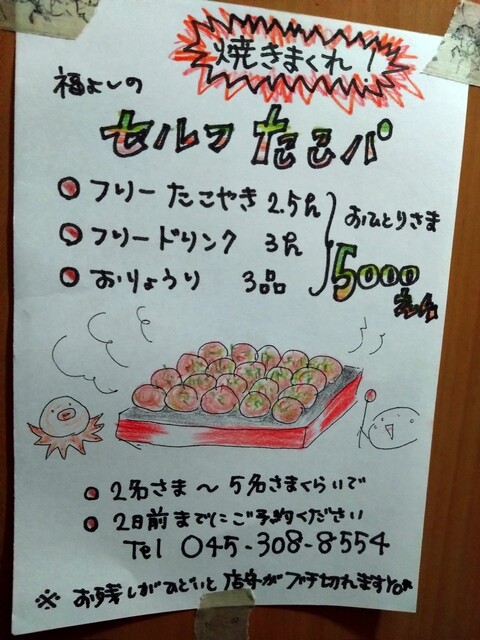 焼きまくれ!
福よしの
セルフ たこパ
フリーたこやき 2.5h
フリードリンク 3h
おりょうり 3品
おひとりさま
5000
えん
2名さま〜5名さまくらいで
2日前までにご予約ください
Tel 045-308-8554
※ お残しがひどいと 店主がブチ切れます